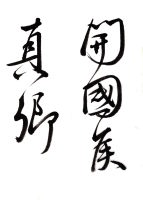 開國侯
真卿